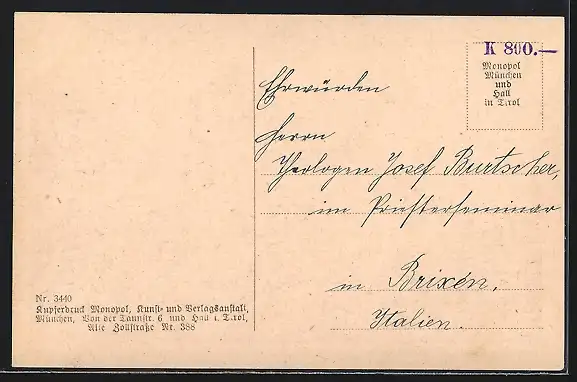 K 800.—
Monopol
München
und
Hall
in Tirol
Ehrwürden
Herrn
Theologen Josef Burtscher,
im Priesterseminar
in Brixen,
Italien.
Nr. 3440
Kupferdruck Monopol, Kunst- und Verlagsanstalt,
München, Von der Tannstr. 6 und Hall i. Tirol,
Alte Zollstraße Nr. 388